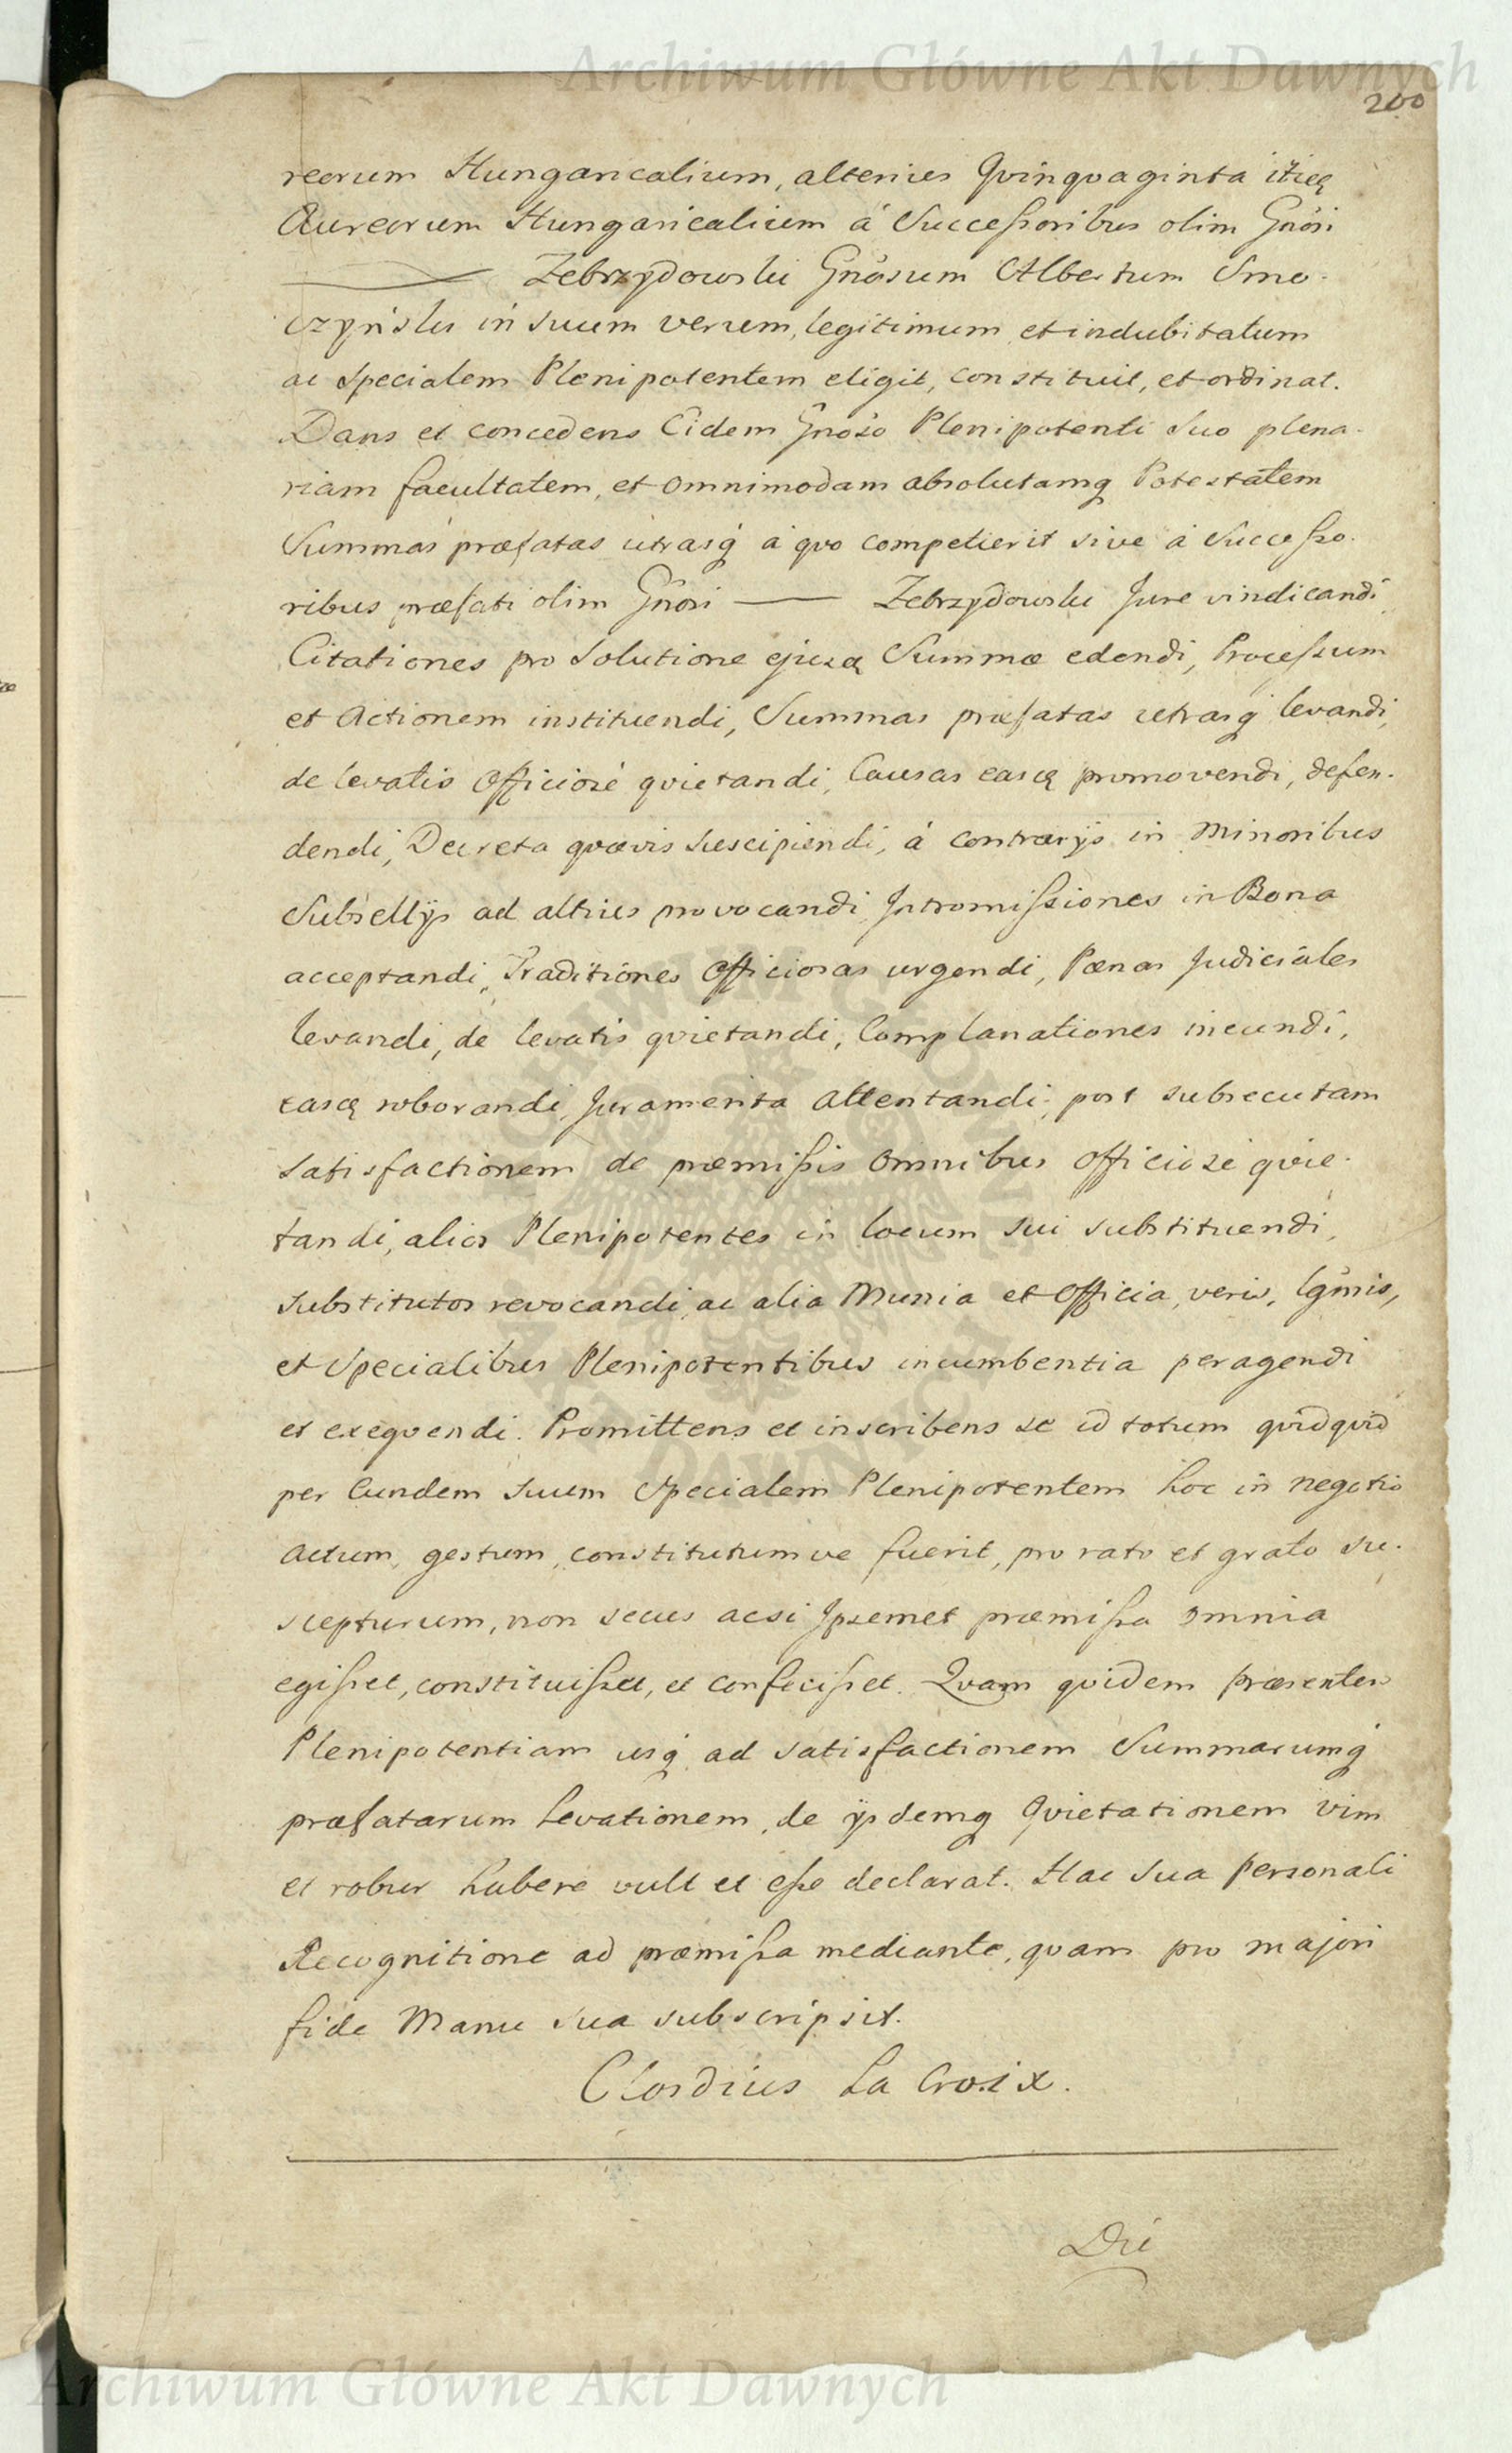 Archiwum Główne Akt Dawnych
200
reorum Hungaricalium, alterius Qvinqvaginta itiꝫ
Aureorum Hungaricalium á Succeßoribus olim Gnosi
Zebrzydowski Gnosum Albertum Smo-
czyński in suum verum, legitimum et indubitatum
ac specialem Plenipotentem eligit, constituit, et ordinat.
Dans et concedens Eidem Gnoso Plenipotenti Suo plena-
riam facultatem, et omnimodam absolutamq Potestatem
Summas præfatas utrasq á qvo competierit sive á Succeßo-
ribus præfati olim Gnosi Zebrzydowski Jure vindicandi
Citationes pro Solutione ejusꝫ Summæ edendi, Proceßum
et Actionem instituendi, Summas præfatas utrasq levandi,
de levatis Officiosé qvietandi, Causas easꝫ promovendi, defen-
dendi, Decreta qvævis suscipiendi, á contrarÿs in Minoribus
Subsellÿs ad altius provocandi, Intromißiones in Bona
acceptandi, Traditiones Officiosas urgendi, Pœnas Judiciales
levandi, de levatis qvietandi, Complanationes ineundi,
easꝫ roborandi, Juramenta attentandi, post subsecutam
satisfactionem de præmißis Omnibus Officiosé qvie-
tandi, alios Plenipotentes in locum sui substituendi,
substitutos revocandi, ac alia Munia et Officia, veris, lgmis,
et Specialibus Plenipotentibus incumbentia peragendi
et exeqvendi. Promittens et inscribens se id totum qvidqvid
per Eundem suum Specialem Plenipotentem hoc in negotio
Actum, gestum, constitutumve fuerit, pro rato et grato su-
scepturum, non secus acsi Ipsemet præmißa omnia
egißet, constituißet, et confecißet. Qvam qvidem præsentem
Plenipotentiam usq ad satisfactionem Summarumq
præfatarum Levationem, de ÿsdemq Qvietationem vim
et robur habere vult et eße declarat. Hac Sua Personali
Recognitione ad præmißa mediante, qvam pro majori
fide Manu Sua subscripsit.
Clordius La Croix.
Die
Archiwum Główne Akt Dawnych